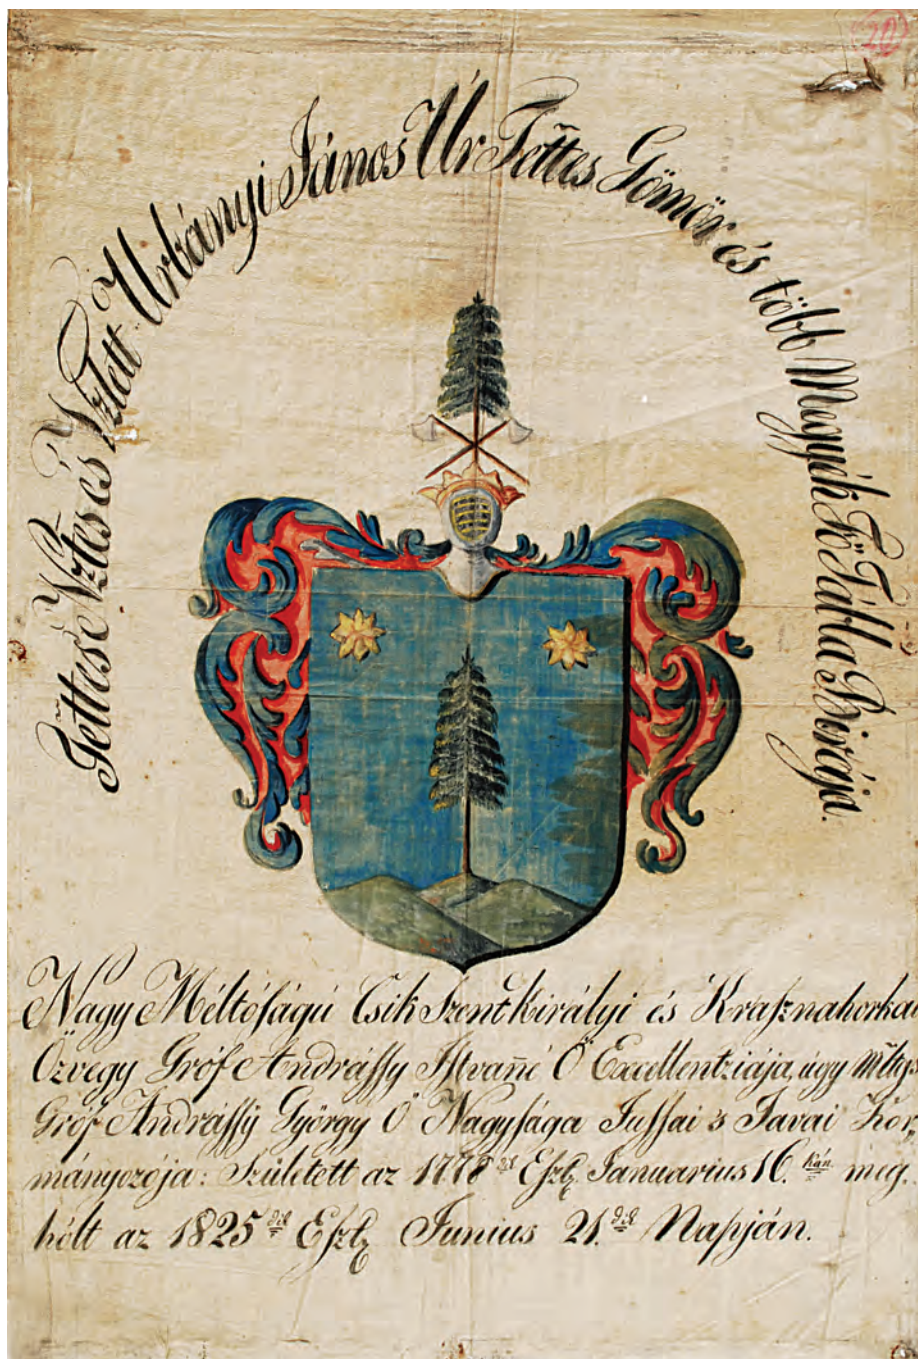 20
Tettes és Vztes és Vztett Urbányi János Úr Tettes Gömör és több Megyék Fő Tábla Birája.
Nagy Méltóſágú Csik Szent Királyi és Kraſznahorkai
Özvegy Gróf Andráſſy Iſtvańé Ő Excellentziája, úgy Mltgs
Gróf Andráſſÿ György Ő Nagyſága Juſſai 's Javai Kor„
mányozója: Született az 1778 dik Eſzt. Januarius 16. kán meg„
hólt az 1825 dik Eſzt. Junius 21. dik Napján.